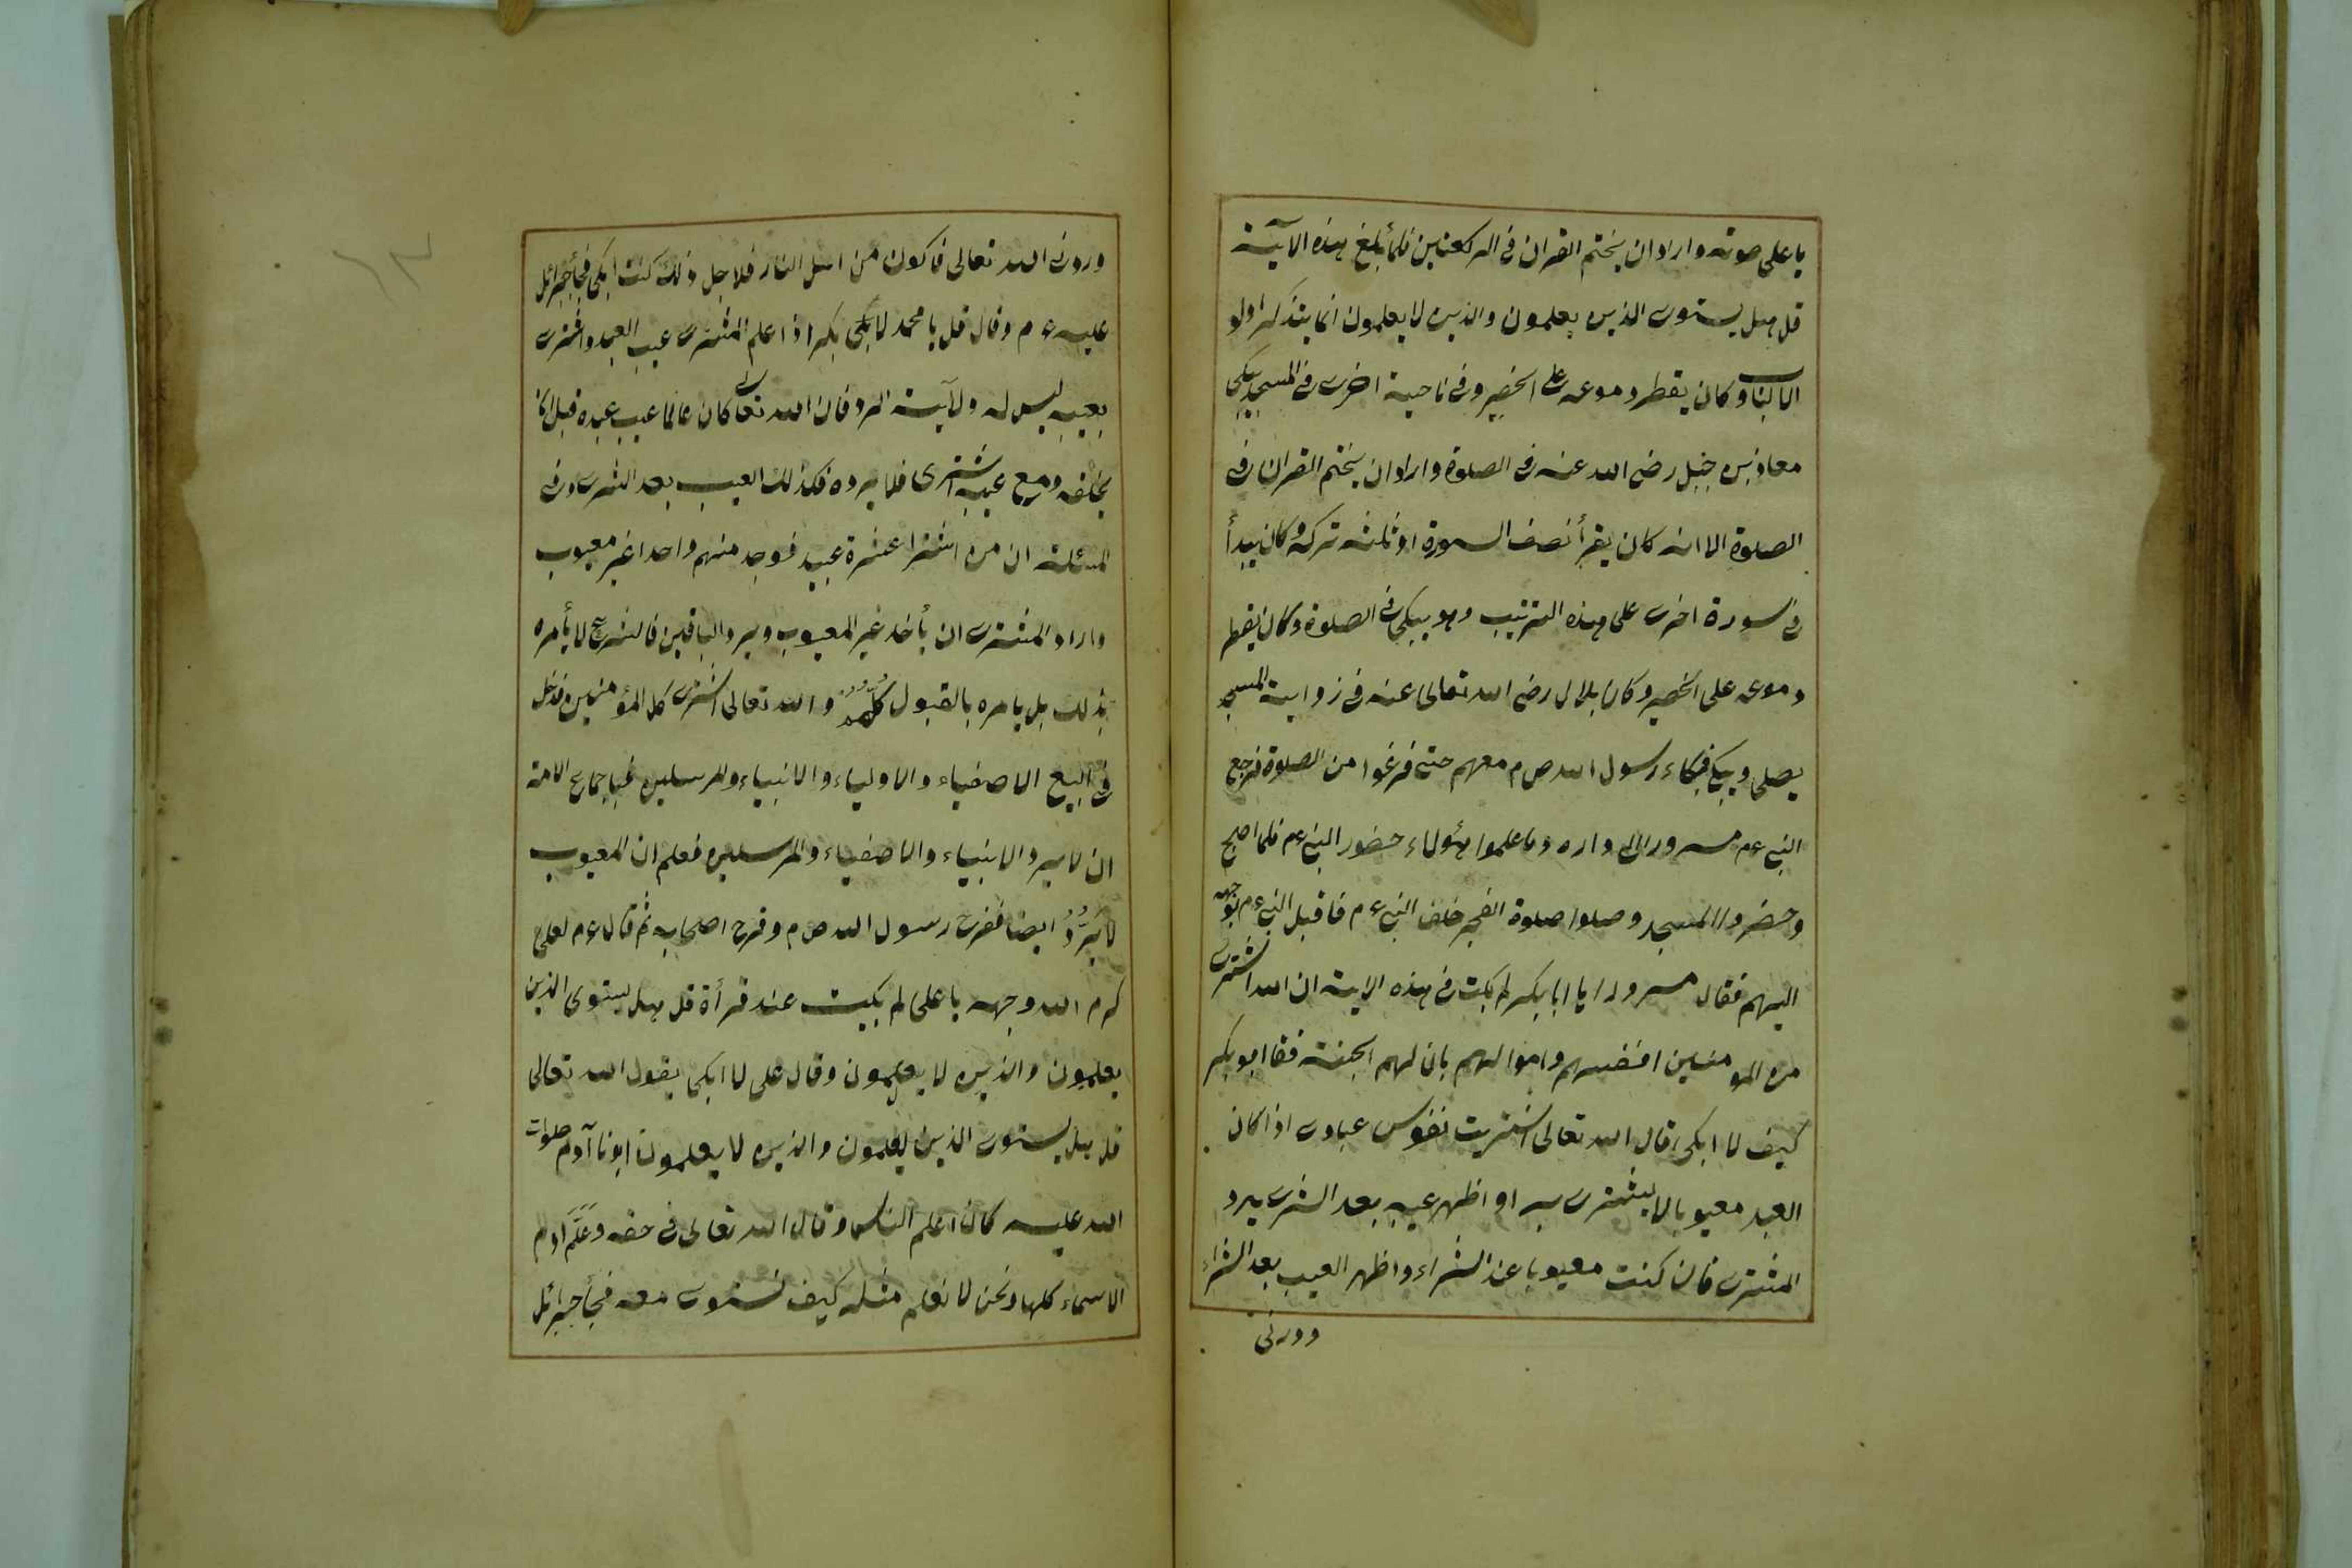 باعلى صوته واراد ان يختم القران فى الركعتين فلما بلغ هذه الآية
قل هل يستوى الذين يعلمون والذين لا يعلمون انما يتذكر اولو
الالباب وكان يقطر دموعه على الحصير وفى ناحية اخرى فى المسجد يبكى
معاذ بن جبل رضى الله عنه فى الصلوة واراد ان يختم القران فى
الصلوة الا انه كان يقرأ نصف السورة او ثلثه تركه وكان يبدأ
فى سورة اخرى على هذه الترتيب وهو يبكى فى الصلوة وكان يقطر
دموعه على الحصير وكان بلال رضى الله تعالى عنه فى زواية المسجد
يصلى ويبكى فبكاء رسول الله ص م معهم حتى فرغوا من الصلوة فرجع
النبى عم مسرورا الى داره وما علموا هؤلاء حضور النبى عم فلما اصبح
وحضروا المسجد وصلوا صلوة الفجر خلف النبى ع م فاقبل النبى ع م بوجهه
اليهم فقال مسرورا يا ابا بكر لم بكت فى هذه الاية ان الله اشترى
من المومنين انفسهم واموالهم بان لهم الجنة فقا ابو بكر
كيف لا ابكى قال الله تعالى اشتريت نفوس عبادى اذا كان
العبد معيوبا لا يشترى او اظهر عيبه بعد الشرى يرد
المشترى فان كنت معيوبا عند الشراء واظهر العيب بعد الشراء
وردنى
وردنى الله تعالى فاكون من اهل النار فلاجل ذلك كنت ابكى فجأ جبرائل
عليه ع م وقال قل يا محمد لابى بكر اذا علم المشترى عيب العبد واشترى
بعيبه ليس له ولاية الرد فان الله تعالى كان عالما عيب عبده قبل ان
يخلقه ومع عيبه اشترى فلا يرده فكذلك العيب بعد الشرى وفى
المسئلة ان من اشترا عشرة عبيد فوجد منهم واحدا غير معيوب
واراد المشترى ان يأخذ غير المعيوب ويرد الباقين فالشرع لا يأمره
بذلك بل يامره بالقبول كلهم والله تعالى اشترى كل المؤمنين فدخل
فى البيع الاصفياء والاولياء والانبياء والمرسلين فباجماع الامة
ان لا يرد الانبياء والاصفياء والمرسلين فعلم ان المعيوب
لا يرد ايضا ففرح رسول الله ص م وفرح اصحابه ثم قال ع م لعلى
كرم الله وجهه يا على لم بكيت عند قرأة قل هل يستوى الذين
يعلمون والذين لا يعلمون وقال على لا ابكى يقول الله تعالى
قل هل يستوى الذين يعلمون والذين لا يعلمون ابونا آدم صلوات
الله عليه كان اعلم الناس وقال الله تعالى فى حقه وعلم آدم
الاسماء كلها ونحن لا نعلم مثله كيف نستوى معه فجأ جبرائل